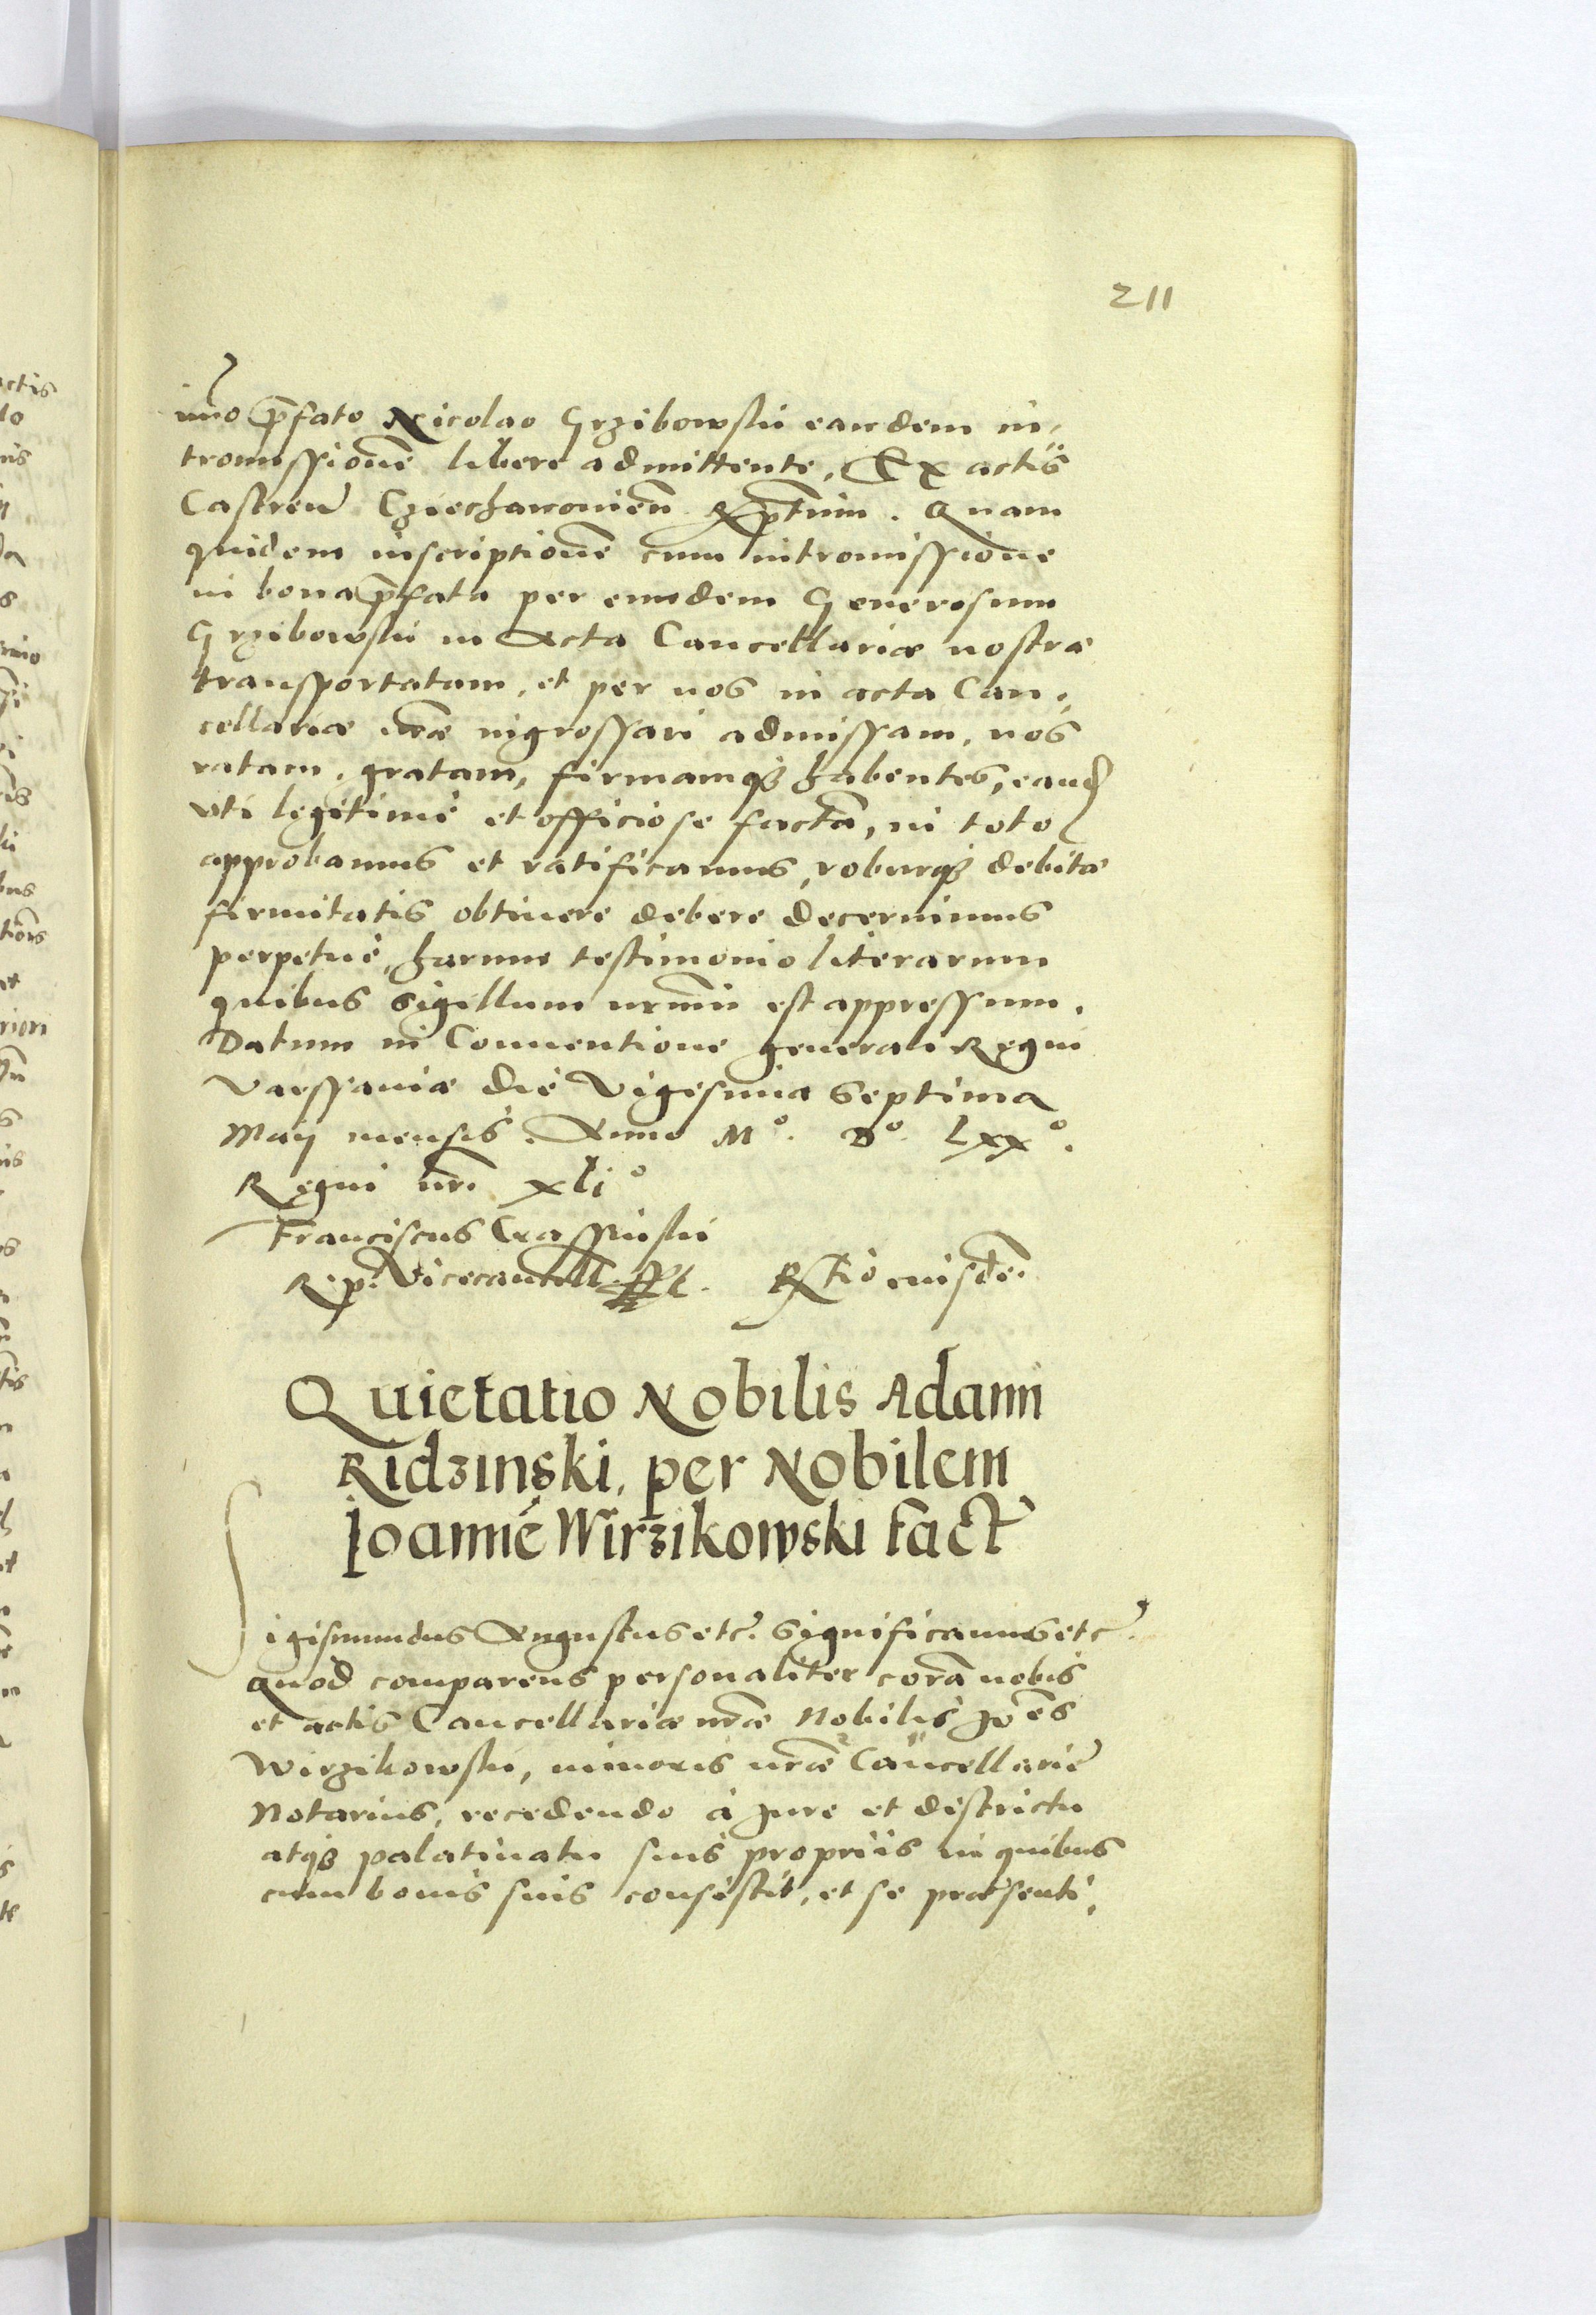 211
imo p̄fato Nicolao Grzibowski eandem in,
tromissionē libere admittente, Ex actis
Castreń Cziechanovień Rptum. Quam
quidem inscriptionē cum intromissione
in bona p̄fata per eundem Generosum
Grzibowski in Acta Cancellariæ nostræ
transportatam, et per nos in acta Can,
cellariæ nræ ingrossari admissam, nos
ratam, gratam, firmamq₃ habentes, eand
vti legitimè et officiose factā, in toto
approbamus et ratificamus, roburq₃ debitæ
firmitatis obtinere debere decernimus
perpetuè, harum testimonio literarum
quibus sigillum nrum est appressum.
Datum in Conuentione generali Regni
Varssauiæ die Vigesima Septima
Maij mensis. Anno M°. D°. Lxx°.
Regni nri. xli°
Franciscus Crassinski
R. p. Vicecancell. sspt. Rtio eiusdē.
Quietatio Nobilis Adami
Ridzinski, per Nobilem
Joannē Wirzikowski fact
Sigismundus Augustus etc. significamus etc.
Quod comparens personaliter corā nobis
et actis Cancellariæ nræ Nobilis Joēs
Wirzikowski, minoris nræ Cancellarie
Notarius, recedendo à Jure et districtu
atq₃ palatinatu suis propriis in quibus
cum bonis suis consistit, et se præsenti,